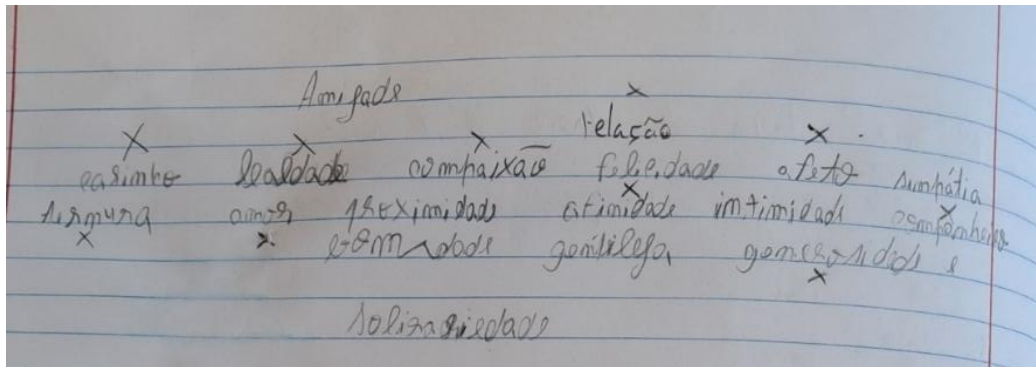 Amizade
relação
carinho lealdade compaixão felicidade afeto simpátia
ternura amor proximidade afinidade intimidade companheiro
gentileza, generosidade e
solidariedade